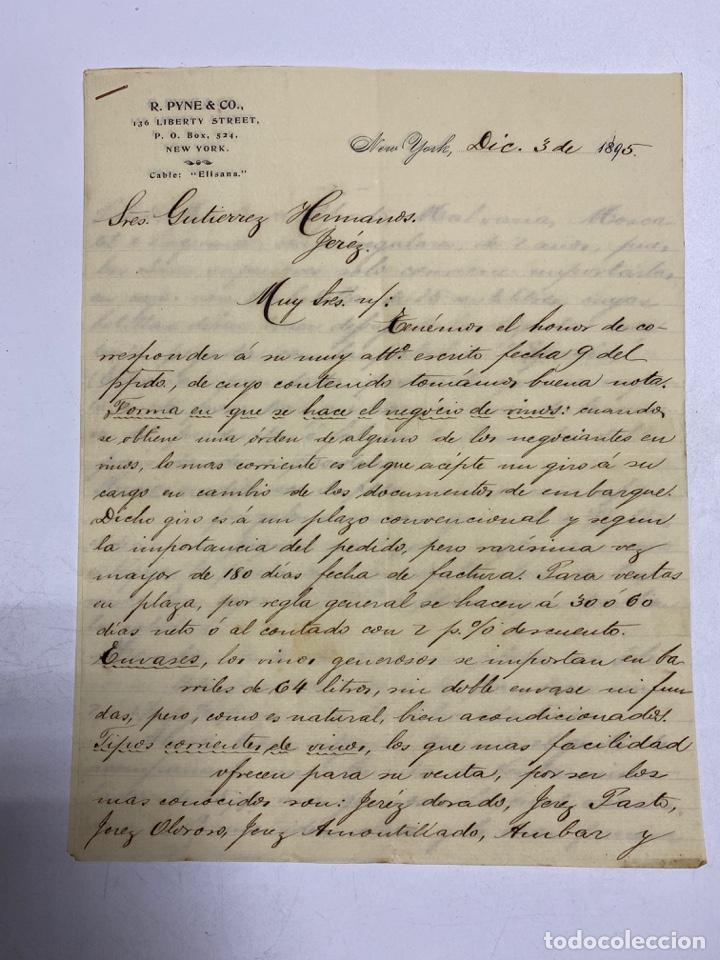 R. PYNE & CO.,
136 LIBERTY STREET,
P. O. Box, 524,
NEW YORK.
Cable: "Elisana."
New York, Dic. 3 de 1895.
Sres. Gutierrez Hermanos.
Jeréz.
Muy Sres. n/:
Tenémos el honor de co-
rresponder á su muy attº. escrito fecha 9 del
ppdo, de cuyo contenido tomámos buena nota.
Forma en que se hace el negócio de vinos: cuando
se obtiene una órden de alguno de los negociantes en
vinos, lo mas corriente es el que acépte un giro á su
cargo en cambio de los documentos de embarque.
Dicho giro es á un plazo convencional y segun
la importancia del pedido, pero rarísima vez
mayor de 180 días fecha de factura. Para ventas
en plaza, por regla general se hacen á 30 ó 60
días neto ó al contado con 2 p.% descuento.
Envases, los vinos generosos se importan en ba-
rriles de 64 litros, sin doble envase ni fun-
das, pero, como es natural, bien acondicionados.
Tipos corrientes de vinos, los que mas facilidad
ofrecen para su venta, por ser los
mas conocidos son: Jeréz dorado, Jerez Pasto,
Jerez Oloroso, Jerez Amontillado, Ambar y
todocoleccion
todocoleccion.net